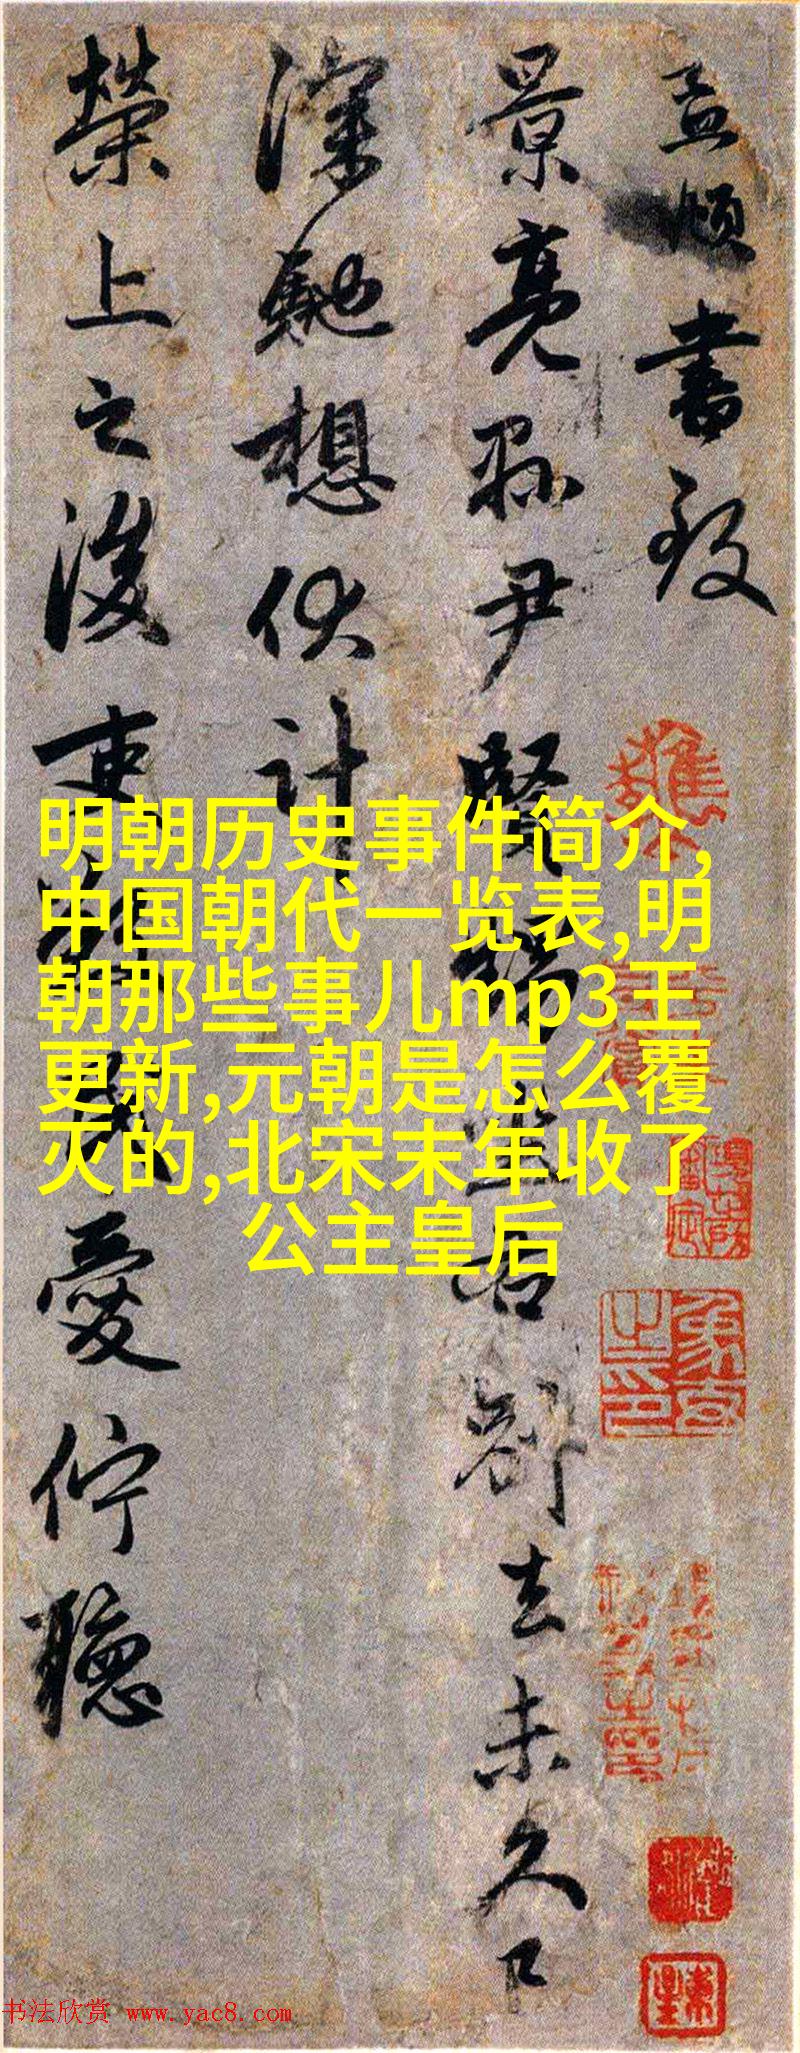 孟頫書致
景亮縣尹賢坐右別去未久
深馳想伏計
榮上之後吏民愛佇聽
明朝历史事件简介,
中国朝代一览表,明
朝那些事儿mp3王
更新,元朝是怎么覆
灭的,北宋末年收了
公主皇后
书法欣赏 www.yac8.com